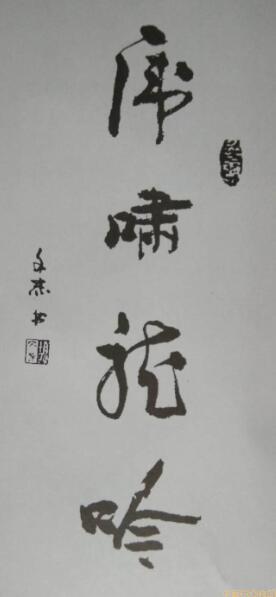 虎啸龙吟
文杰书